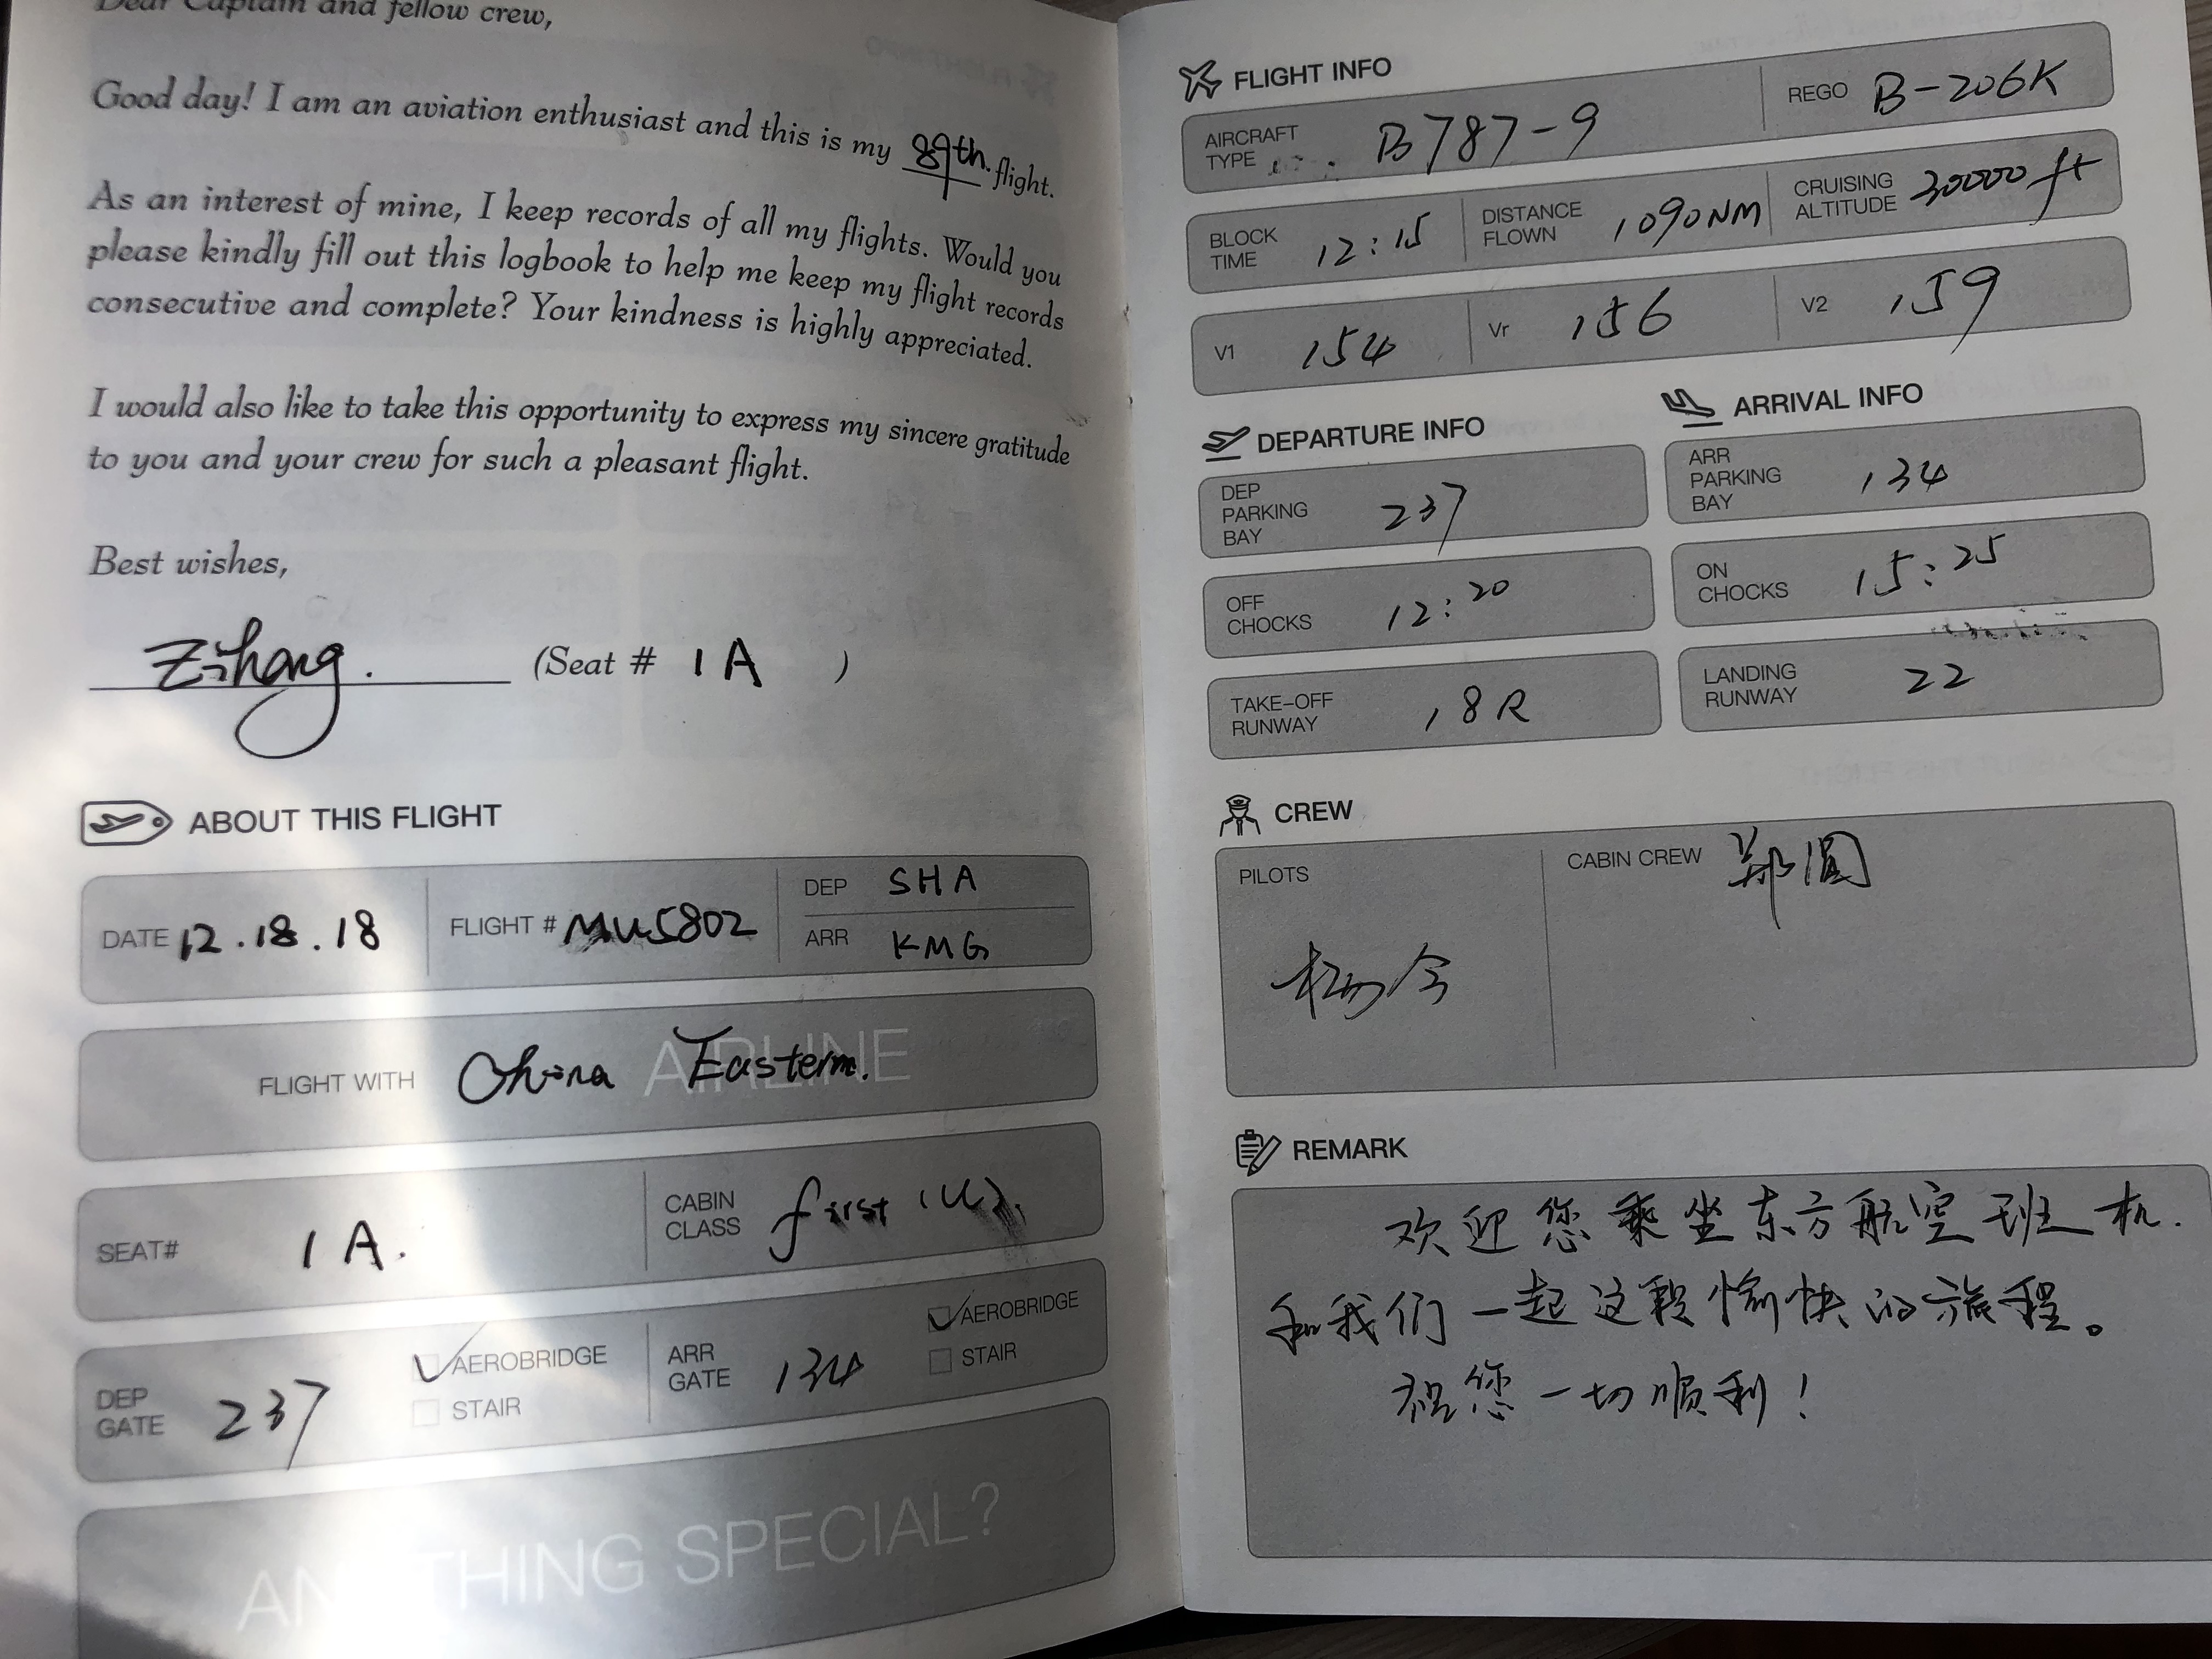 Dear Captain and fellow crew,
Good day! I am an aviation enthusiast and this is my 89th. flight.
As an interest of mine, I keep records of all my flights. Would you
please kindly fill out this logbook to help me keep my flight records
consecutive and complete? Your kindness is highly appreciated.
I would also like to take this opportunity to express my sincere gratitude
to you and your crew for such a pleasant flight.
Best wishes,
Zihang. (Seat # 1A )
ABOUT THIS FLIGHT
DATE 12.18.18 FLIGHT # MU5802 DEP SHA
ARR KMG
FLIGHT WITH China Eastern. AIRLINE
SEAT# 1A. CABIN CLASS first (U).
DEP GATE 237 AEROBRIDGE STAIR ARR GATE 134 AEROBRIDGE STAIR
ANYTHING SPECIAL?
FLIGHT INFO
AIRCRAFT TYPE B787-9 REGO B-206K
BLOCK TIME 12:15 DISTANCE FLOWN 1090NM CRUISING ALTITUDE 30000 ft
V1 154 Vr 156 V2 159
DEPARTURE INFO ARRIVAL INFO
DEP PARKING BAY 237 ARR PARKING BAY 134
OFF CHOCKS 12:20 ON CHOCKS 15:25
TAKE-OFF RUNWAY 18R LANDING RUNWAY 22
CREW
PILOTS CABIN CREW 郑圆
REMARK
欢迎您乘坐东方航空班机.
和我们一起这段愉快的旅程。
祝您一切顺利!